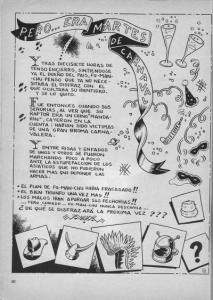 PERO... ERA MARTES
DE CARNAVAL
Y TRAS DIECISIETE HORAS DE
TENSO ENCIERRO, SINTIENDOSE
YA EL DUEÑO DEL PAIS, FU-MAN-
CHU PENSO QUE YA NO NECE-
SITABA EL DISFRAZ CON EL
QUE OCULTABA SU IDENTIDAD,
Y SE LO QUITO.
FUE ENTONCES CUANDO SUS
SEÑORIAS, AL VER QUE SU
RAPTOR ERA UN CHINO MANDA-
RIN, CAYERON EN LA
CUENTA: HABIAN SIDO VICTIMAS
DE UNA GRAN BROMA CARNA-
VALERA.
Y ENTRE RISAS Y ENFADOS
DE UNOS Y OTROS SE FUERON
MARCHANDO POCO A POCO
ANTE LA ESTUPEFACCION DE LOS
ASIATICOS QUE NO PUDIERON
HACER MAS QUE DEPONER LAS
ARMAS.
EL PLAN DE FU-MAN-CHU HABIA FRACASADO!!
EL BIEN TRIUNFO UNA VEZ MAS!!
LOS MALOS IRAN A PURGAR SUS FECHORIAS!!
PERO ¡CUIDADO!... FU-MAN-CHU NUNCA DESCANSA...
¿DE QUE SE DISFRAZARÁ LA PROXIMA VEZ???
?